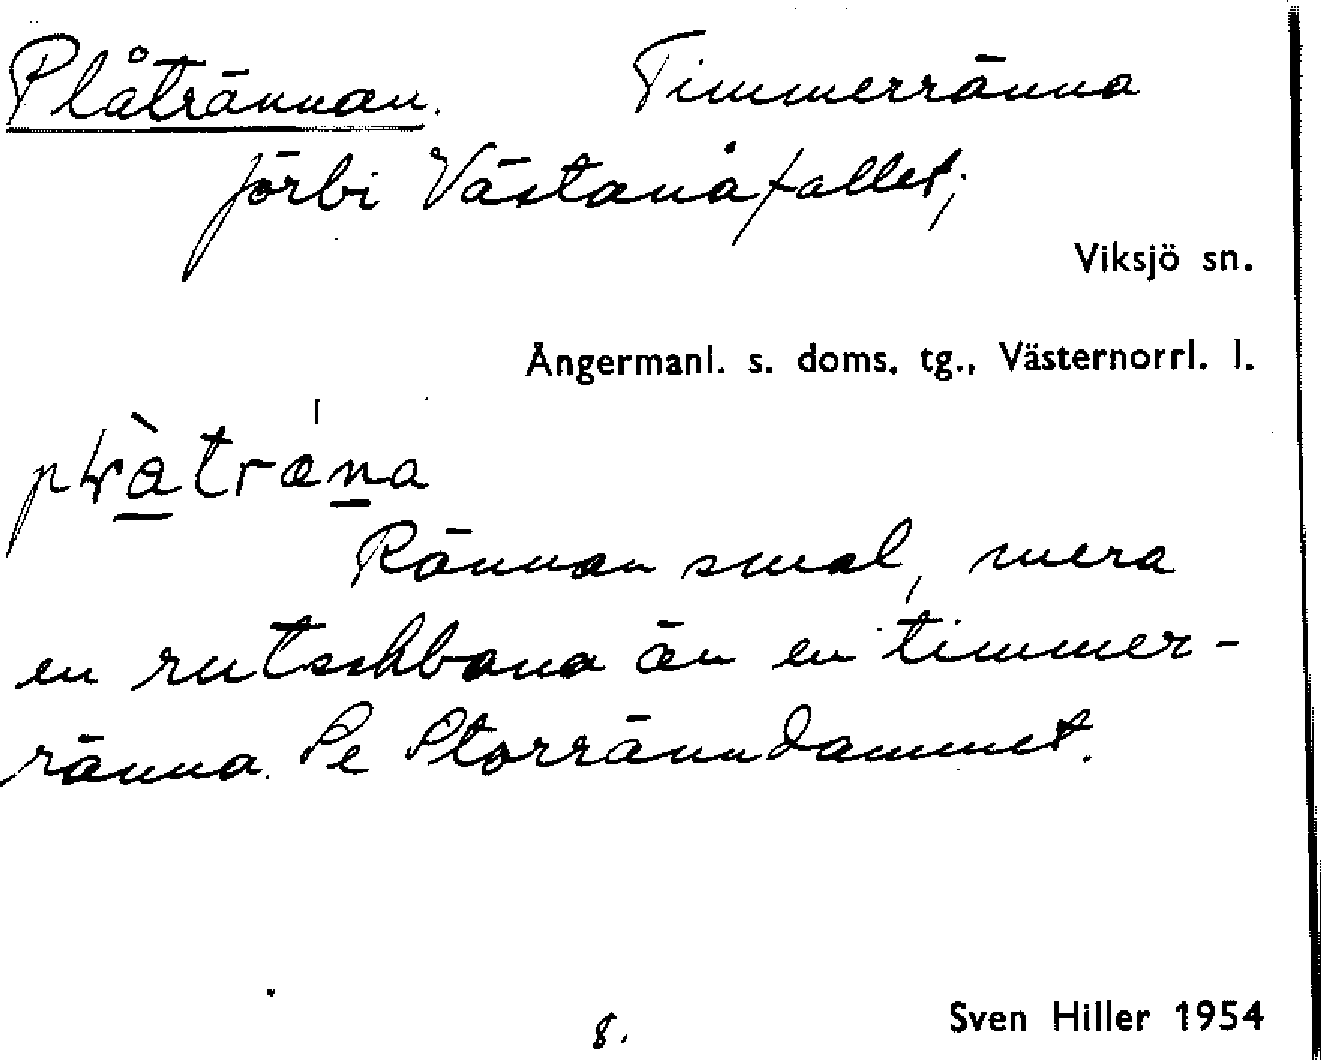 Plåtrännan. Timmerränna
förbi Västanåfallet;
Viksjö sn.
Ångermanl. s. doms. tg., Västernorrl. l.
Rännan smal, mera
en rutschbana än en timmer-
ränna. Se Storränndammet.
8.
Sven Hiller 1954